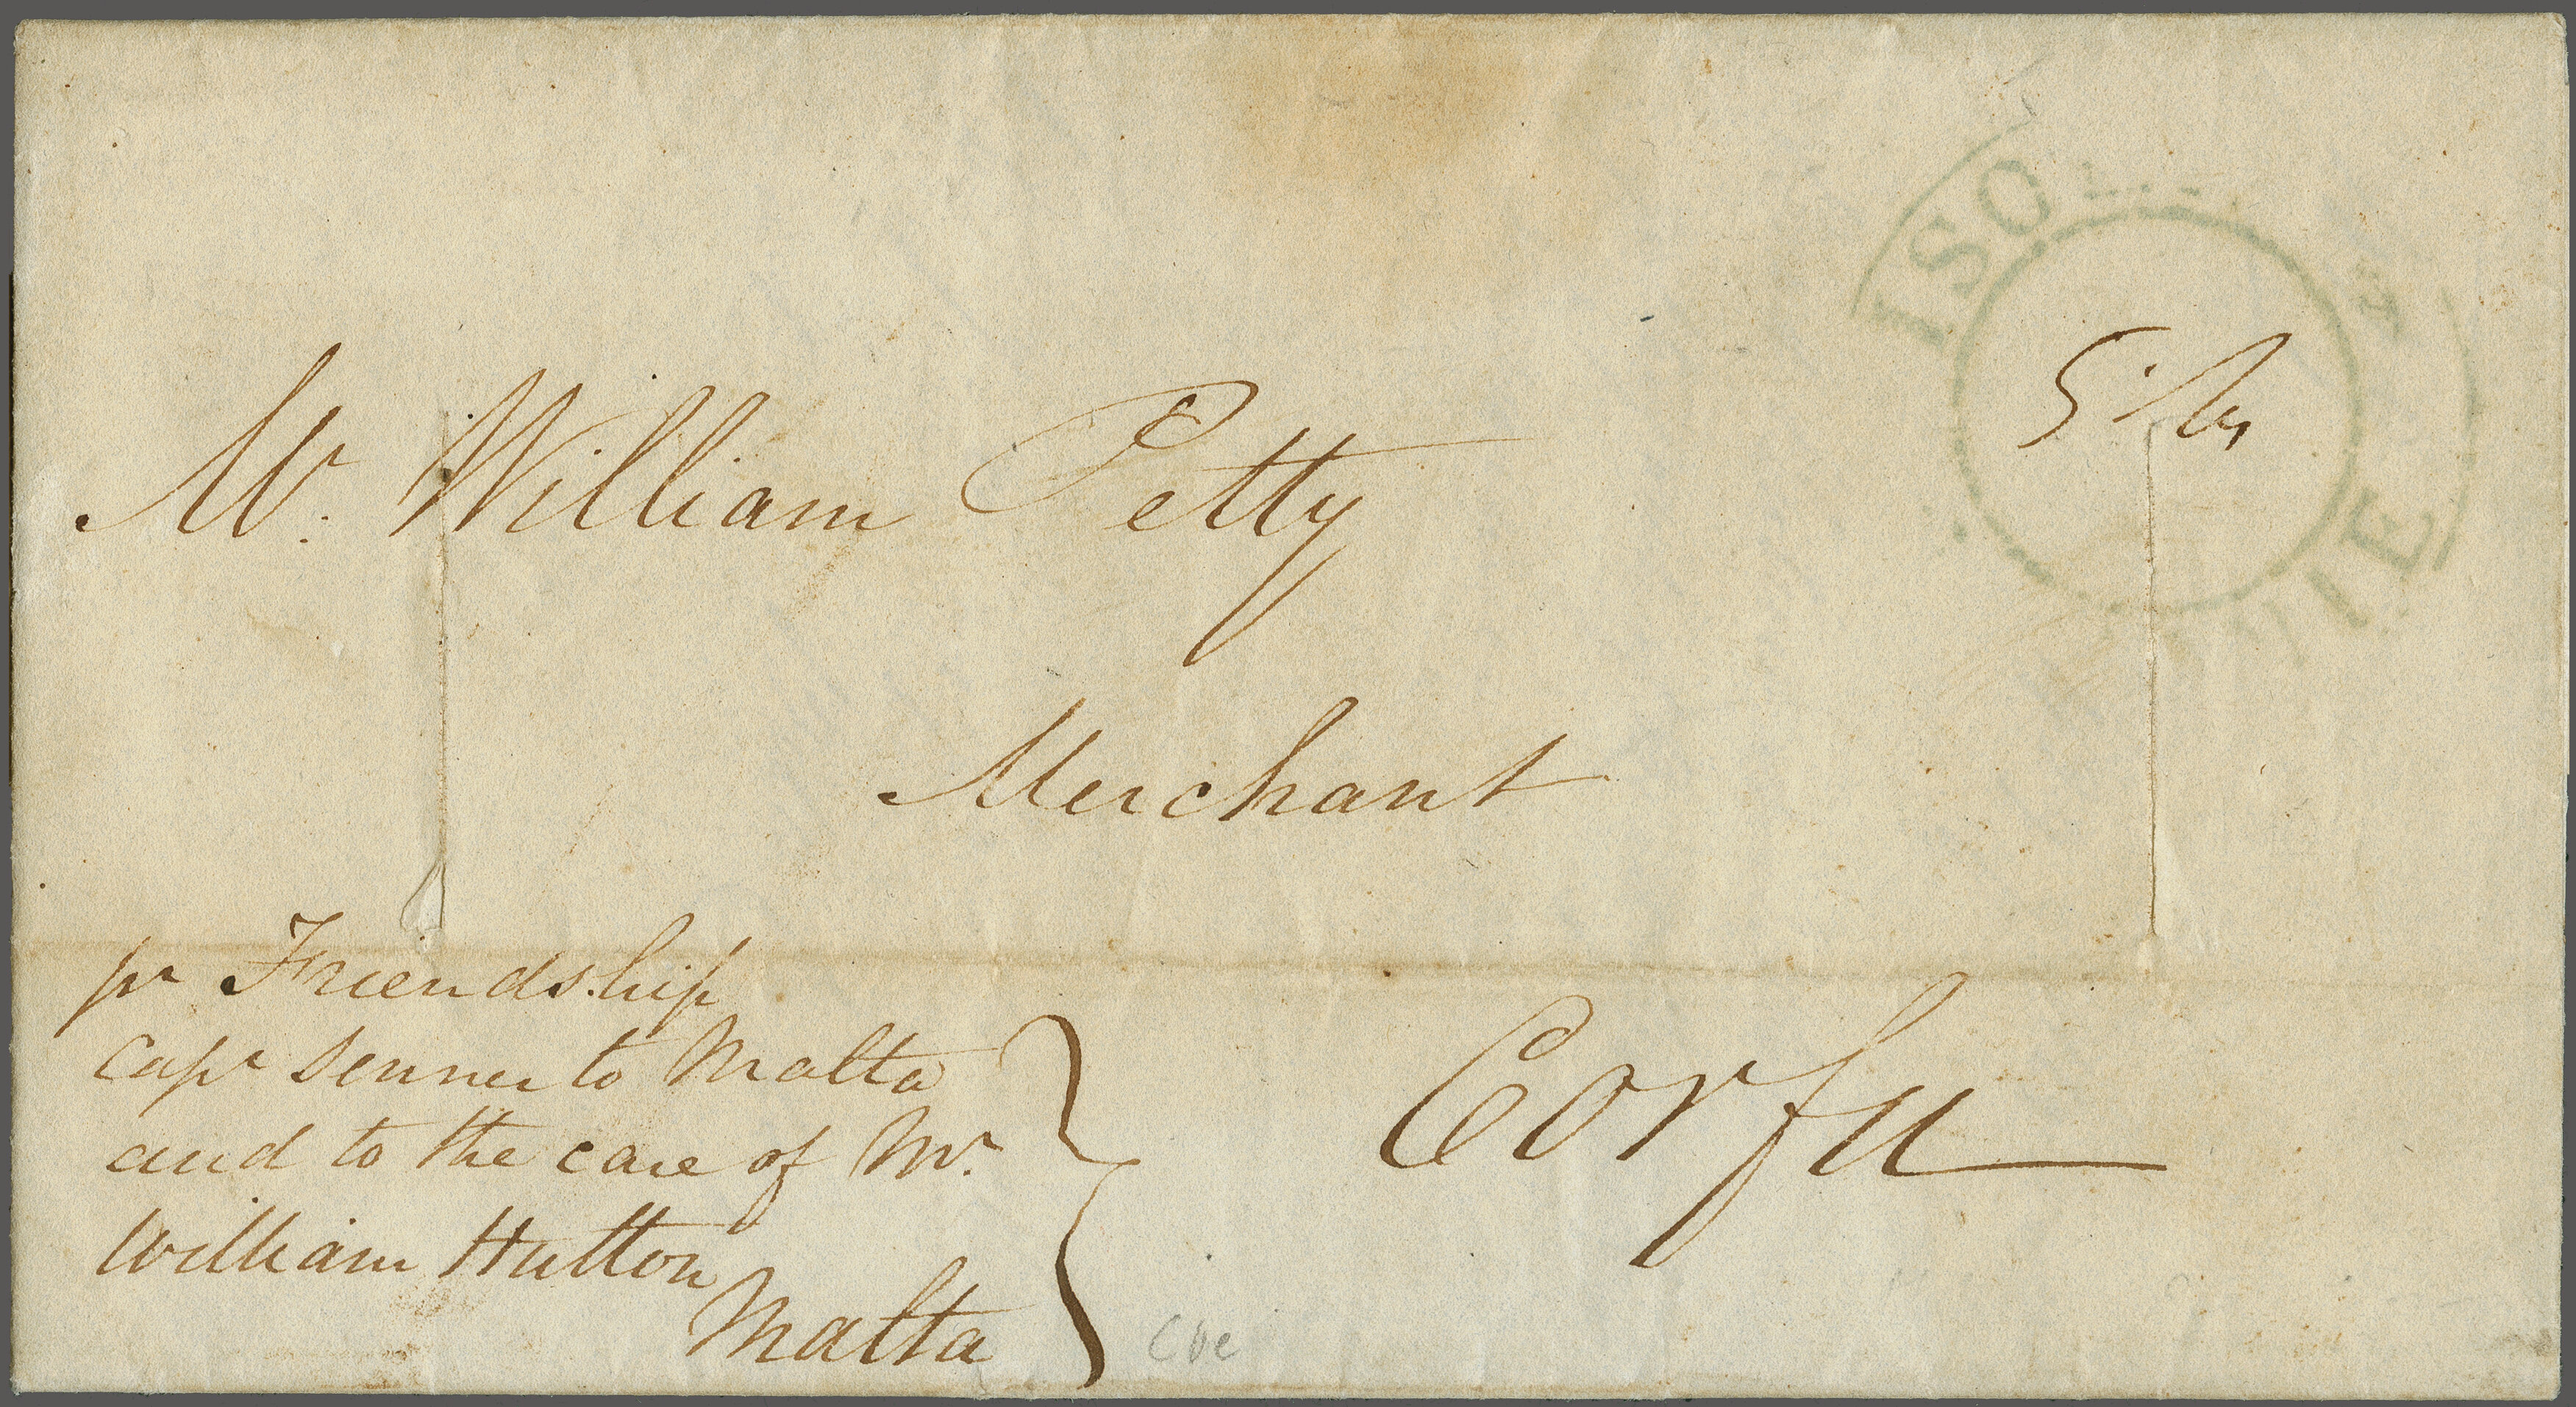 ISO
NIE
Mr. William Petty
Merchant
pr Friendship
Capr Senner to Malta
and to the care of Mr.
William Hutton
Malta
Corfu